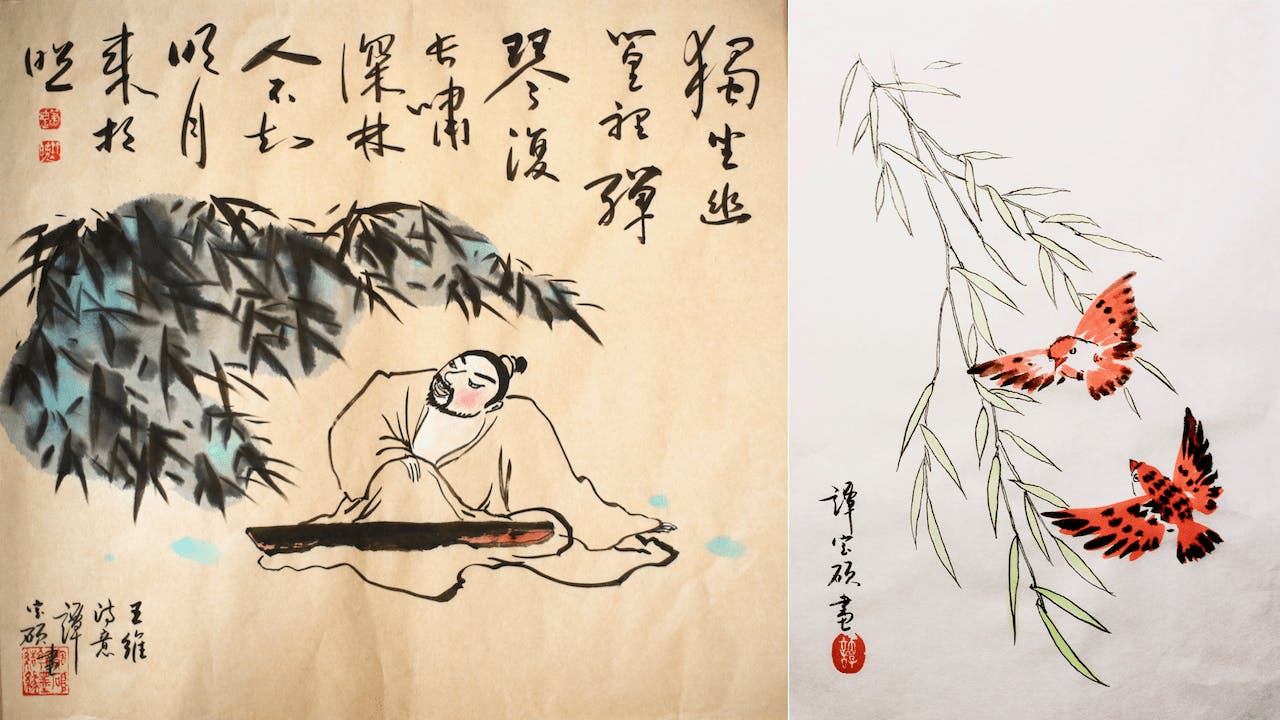 獨坐幽
篁裡彈
琴復
長嘯
深林
人不知
明月
來相
照
王維
詩意
譚
碩畫
譚
碩畫
譚